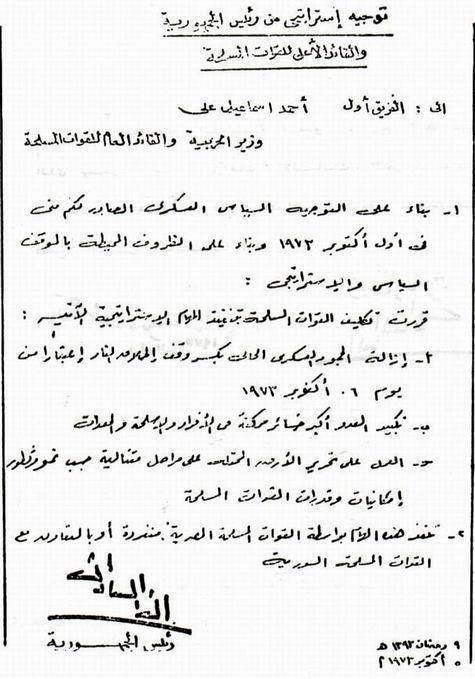 توجيه إستراتيجى من رئيس الجمهورية
والقائد الأعلى للقوات المسلحة
الى : الفريق أول أحمد اسماعيل على
وزير الحربية والقائد العام للقوات المسلحة
١- بناء على التوجيه السياسى العسكرى الصادر لكم منى
فى أول أكتوبر ١٩٧٣ وبناء على الظروف المحيطة بالموقف
السياسى والإستراتيجى :
قررت تكليف القوات المسلحة بتنفيذ المهام الإستراتيجية الآتية :
أ- إزالة الجمود العسكرى الحالى بكسر وقف إطلاق النار إعتباراً من
يوم ٠٦ أكتوبر ١٩٧٣
ب- تكبيد العدو أكبر خسائر ممكنة فى الأفراد والأسلحة والمعدات
ج- العمل على تحرير الأرض المحتلة على مراحل متتالية حسب نمو وتطور
إمكانيات وقدرات القوات المسلحة
٢- تنفذ هذه المهام بواسطة القوات المسلحة المصرية منفردة أو بالتعاون مع
القوات المسلحة السورية
أنور السادات
رئيس الجمهورية
٩ رمضان ١٣٩٣ هـ
٥ أكتوبر ١٩٧٣ م